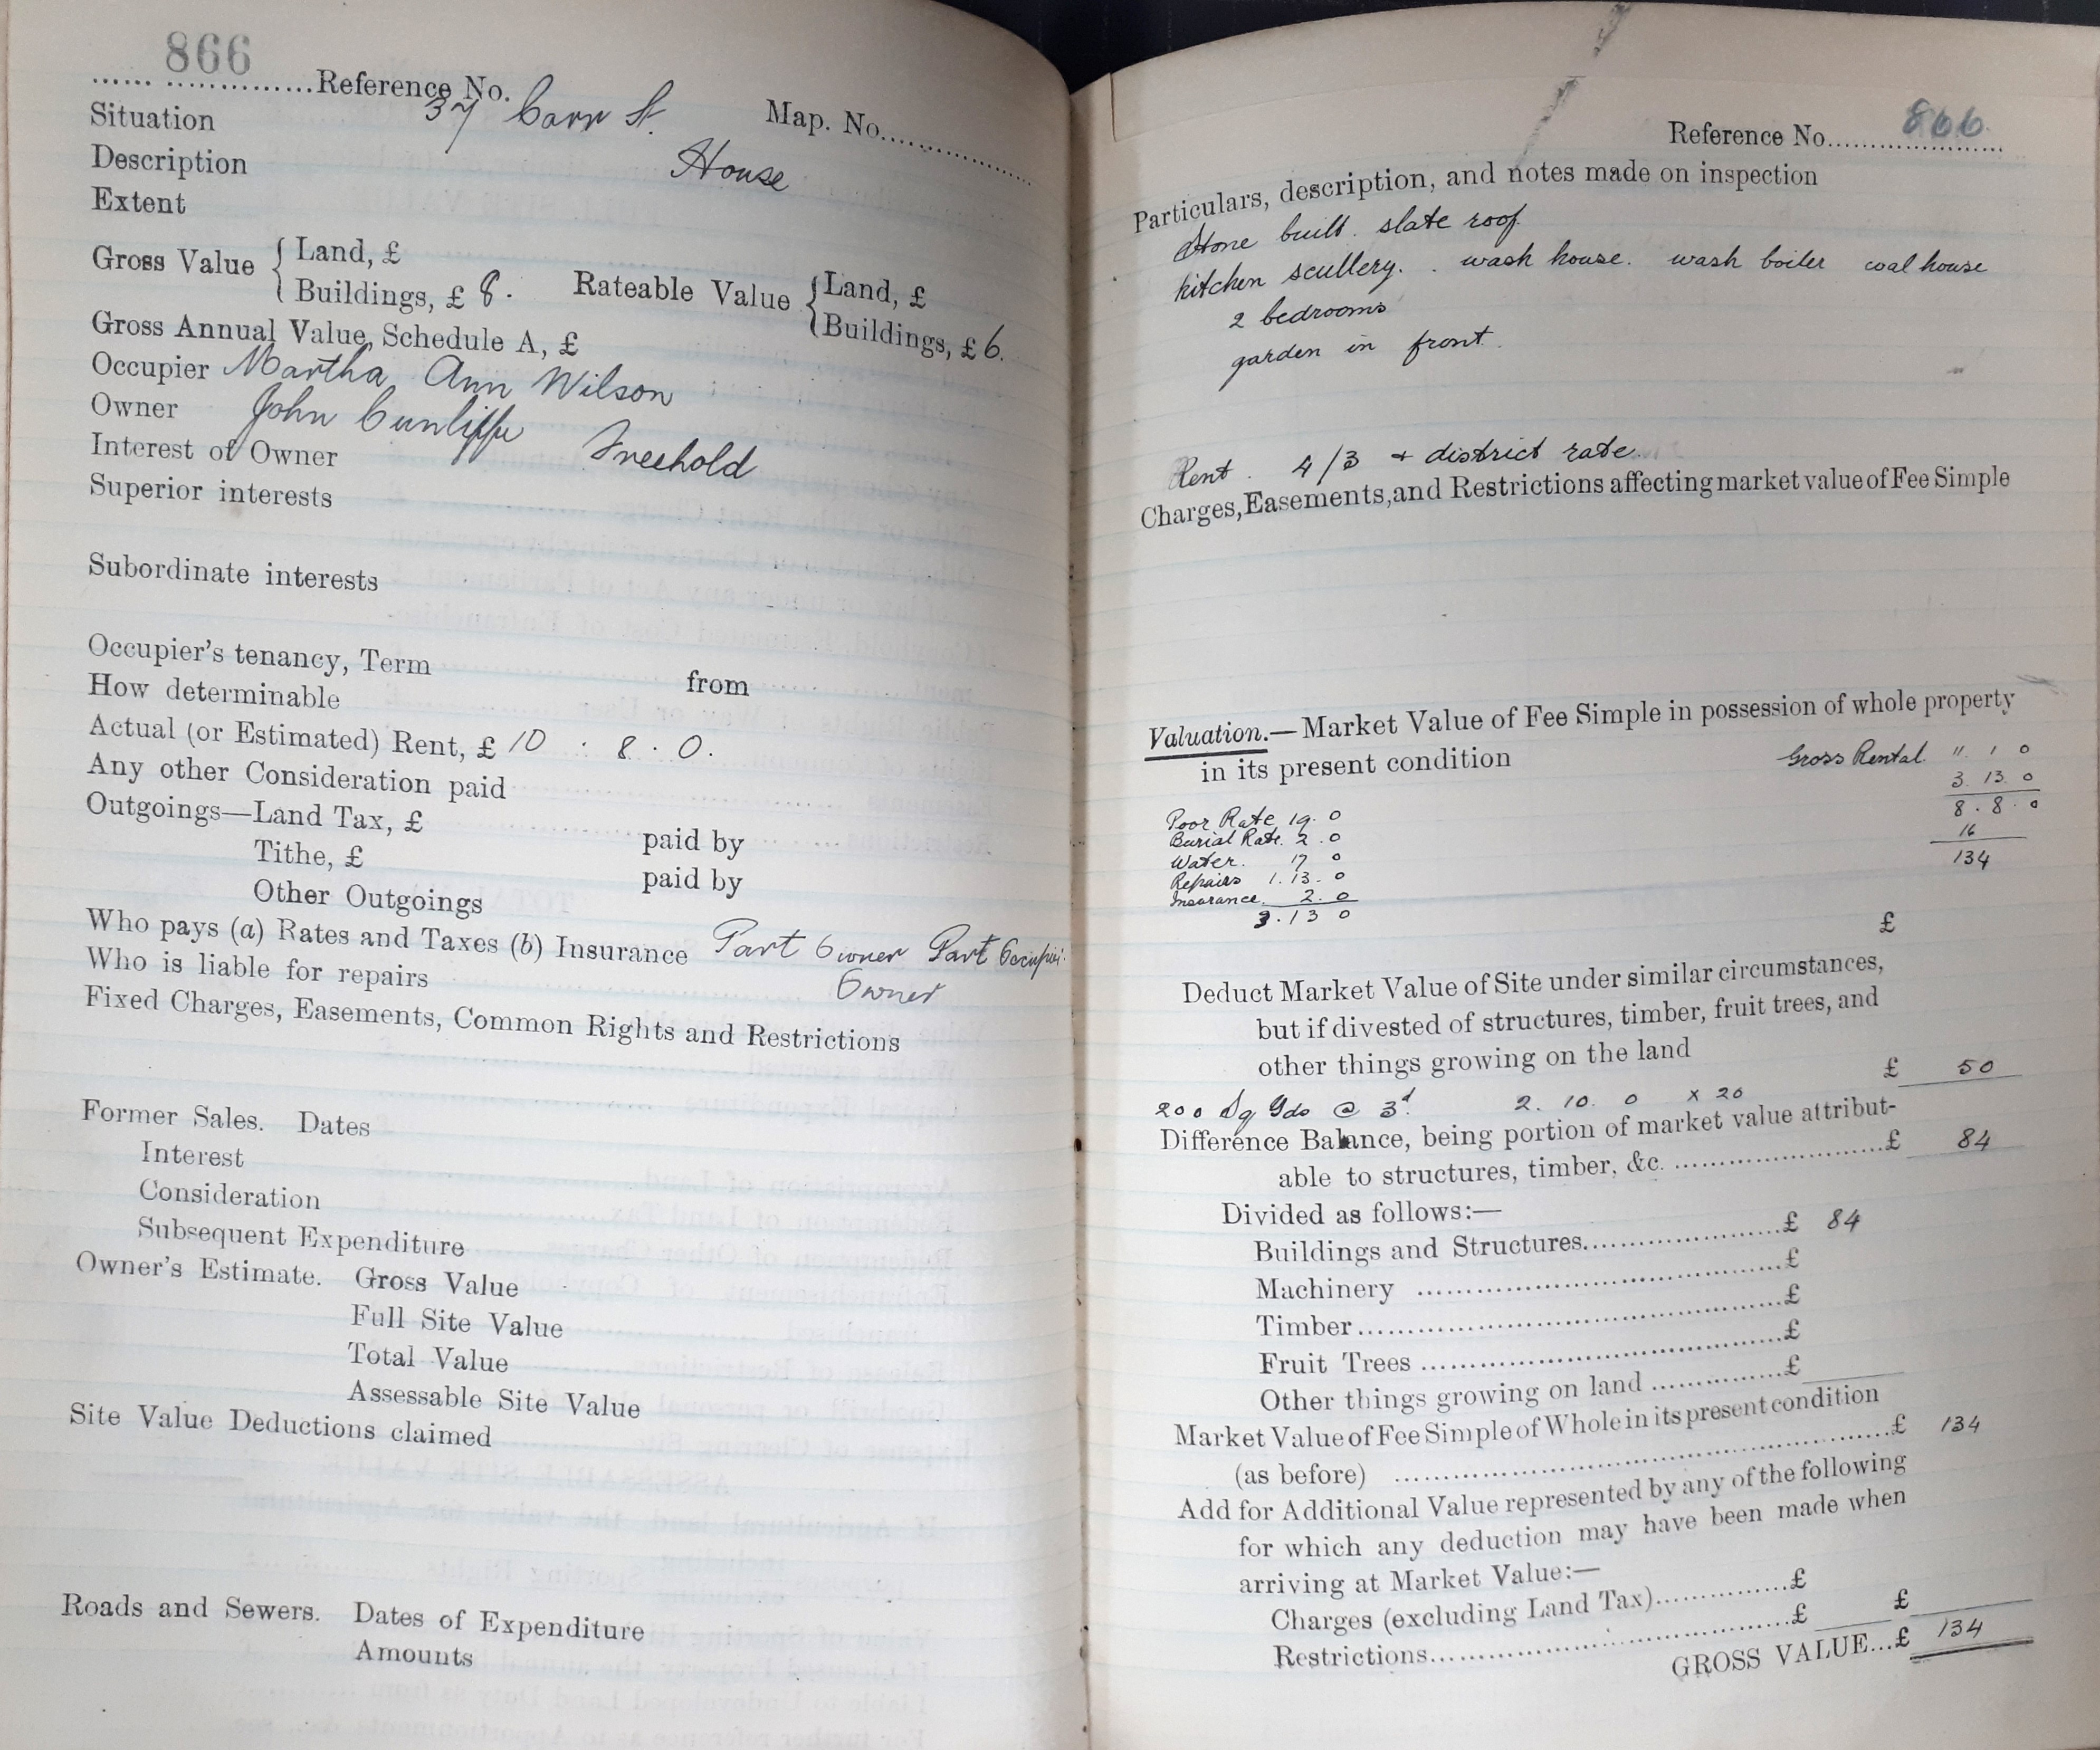 866
Reference No.
Situation 37 Carr St. Map. No.
Description House
Extent
Gross Value { Land, £
Buildings, £ 8. Rateable Value { Land, £
Buildings, £ 6.
Gross Annual Value, Schedule A, £
Occupier Martha Ann Wilson
Owner John Cunliffe
Interest of Owner Freehold
Superior interests
Subordinate interests
Occupier's tenancy, Term from
How determinable
Actual (or Estimated) Rent, £ 10 : 8 . 0.
Any other Consideration paid
Outgoings—Land Tax, £ paid by
Tithe, £ paid by
Other Outgoings
Who pays (a) Rates and Taxes (b) Insurance Part Owner Part
Who is liable for repairs Owner
Fixed Charges, Easements, Common Rights and Restrictions
Former Sales. Dates
Interest
Consideration
Subsequent Expenditure
Owner's Estimate. Gross Value
Full Site Value
Total Value
Assessable Site Value
Site Value Deductions claimed
Roads and Sewers. Dates of Expenditure
Amounts
Reference No. 866
Particulars, description, and notes made on inspection
Stone built. slate roof
kitchen scullery. wash house. wash boiler coal house
2 bedrooms
garden in front.
Rent. 4/3 + district rate.
Charges, Easements, and Restrictions affecting market value of Fee Simple
Valuation.—Market Value of Fee Simple in possession of whole property
in its present condition Gross Rental 11 1 0
3. 13. 0
8 . 8 . 0
16
134
Poor Rate 19. 0
Burial Rate. 2. 0
Water. 17 0
Repairs 1. 13. 0
Insurance. 2. 0
3. 13 0
£
Deduct Market Value of Site under similar circumstances,
but if divested of structures, timber, fruit trees, and
other things growing on the land £ 50
200 Sq Yds @ 3d. 2. 10. 0 x 20
Difference Balance, being portion of market value attribut-
able to structures, timber, &c. £ 84
Divided as follows:—
Buildings and Structures £ 84
Machinery £
Timber £
Fruit Trees £
Other things growing on land £
Market Value of Fee Simple of Whole in its present condition
(as before) £ 134
Add for Additional Value represented by any of the following
for which any deduction may have been made when
arriving at Market Value:—
Charges (excluding Land Tax) £
Restrictions £ £
GROSS VALUE...£ 134